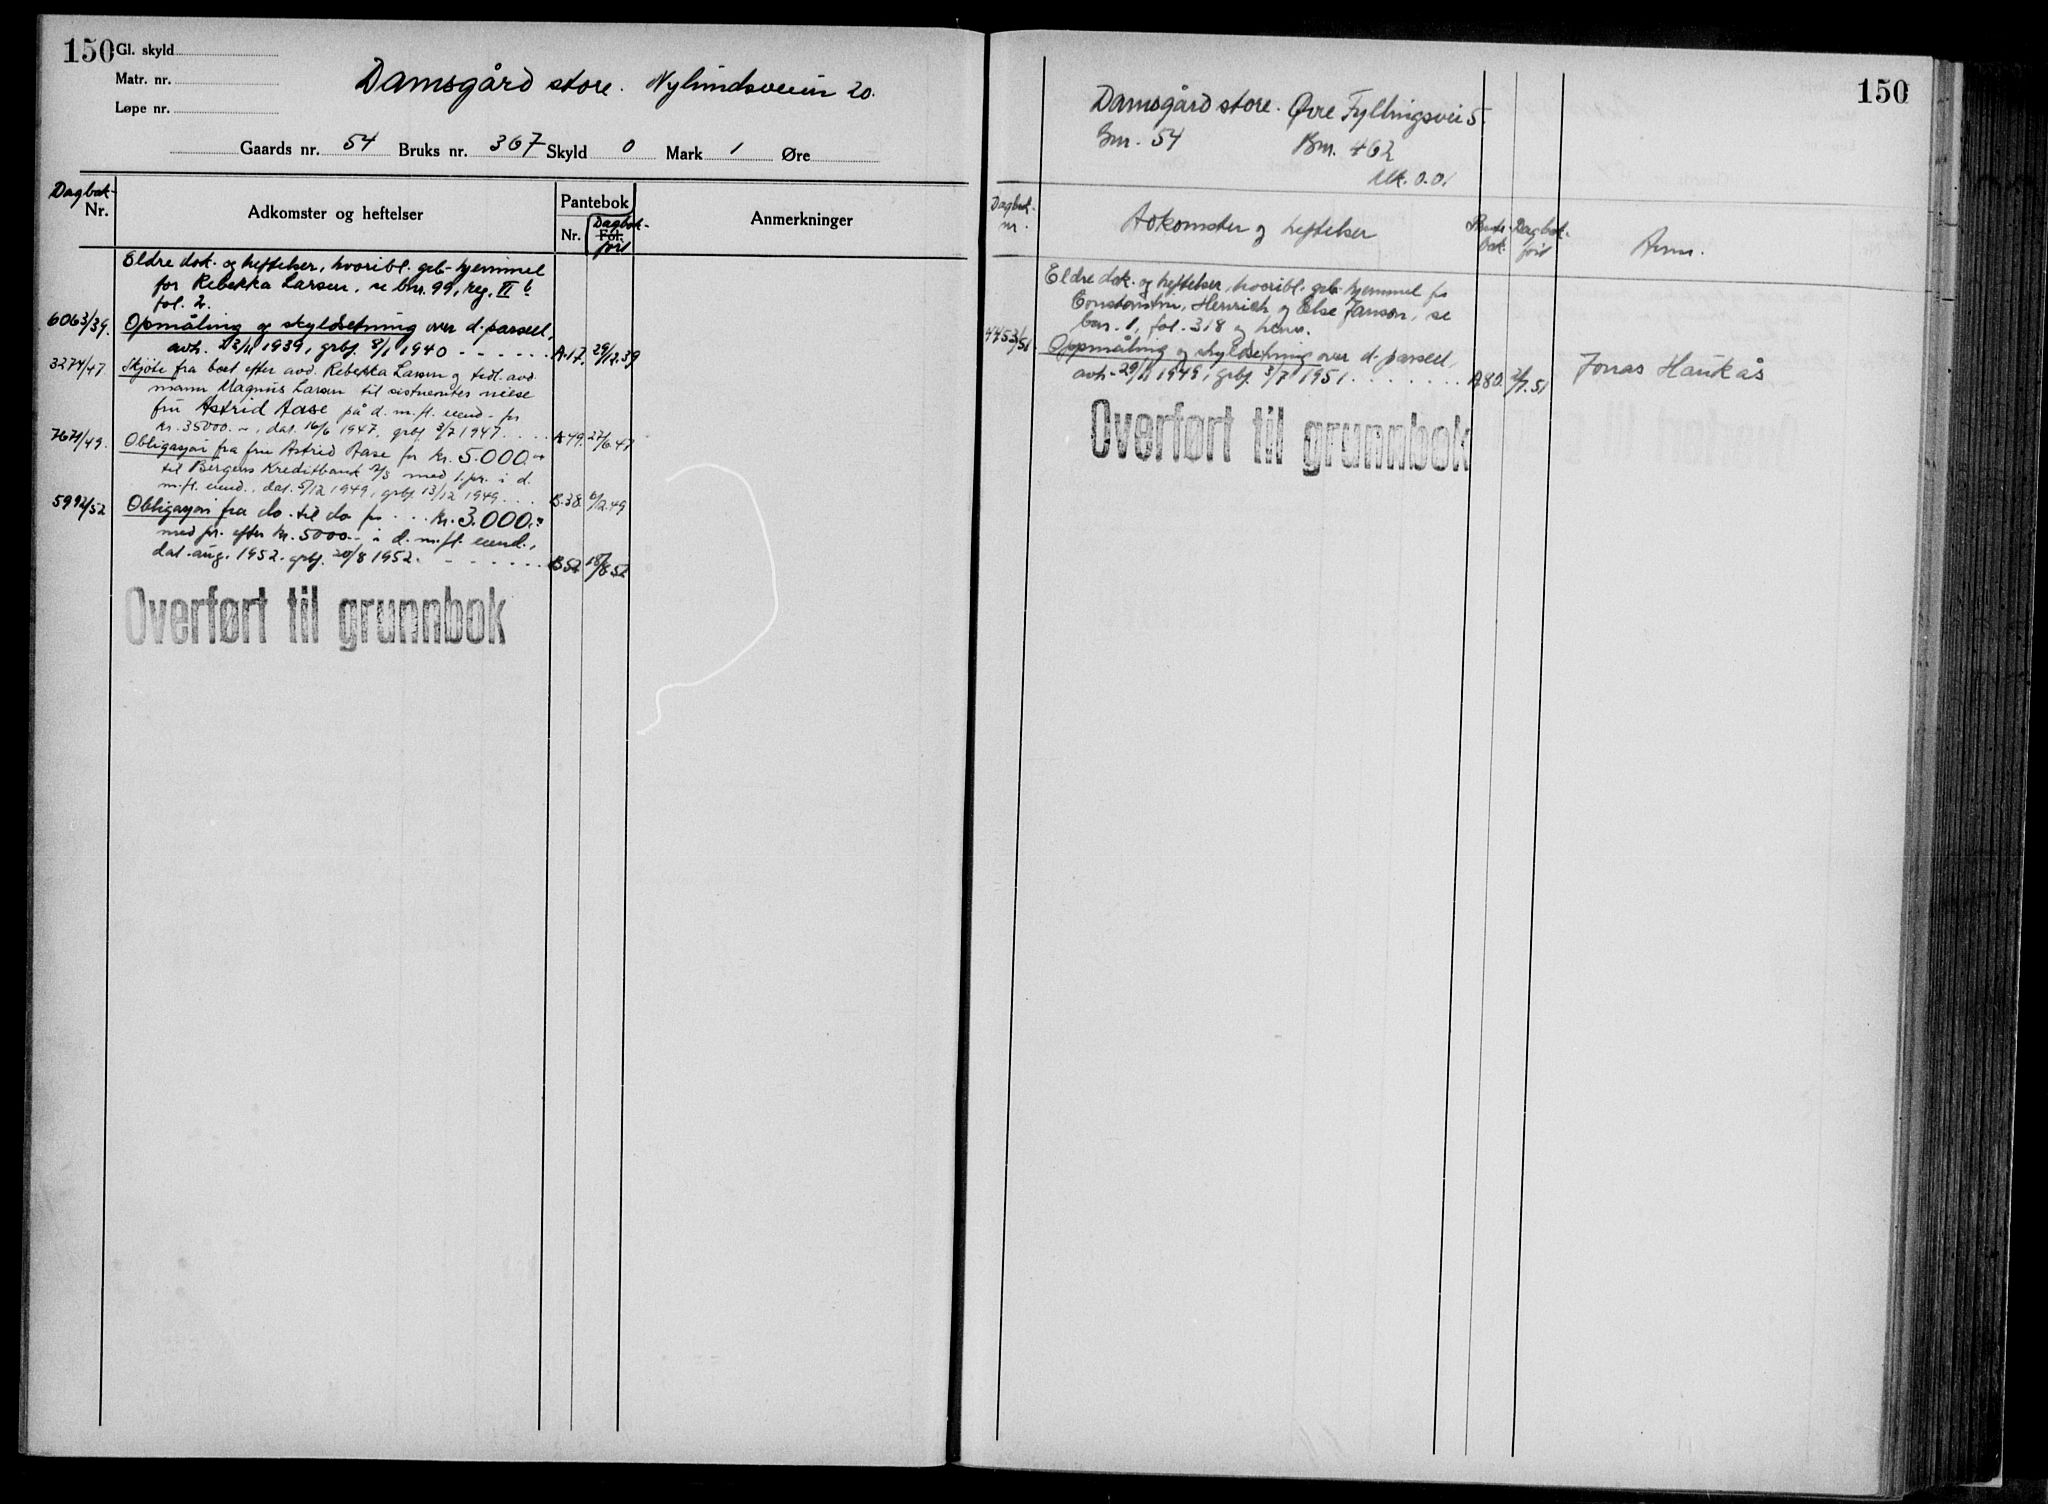 150 Gl. skyld
Matr. nr.
Løpe nr.
Damsgård store. Nylundsveien 20.
Gaards nr. 54 Bruks nr. 367 Skyld 0 Mark 1 Øre
Dagbok-
Nr.
Adkomster og heftelser
Pantebok
Nr. Fol.
Dagbok-
ført
Anmerkninger
Eldre dok. og heftelser, hvoribl. grb. hjemmel
for Rebekka Larsen, se bnr. 99, reg. VI b
fol. 2.
6063/39. Opmåling og skyldsetning over d. parsell,
avh. 23/11 1939, grbf. 8/1 1940 - - - - - - A.17. 29/12.39
3274/47 Skjøte fra boet efter avd. Rebekka Larsen og tidl. avd.
mann Magnus Larsen til sistnevntes niese
fru Astrid Aase på d. m. fl. eiend. for
kr. 35000.-, dat. 16/6 1947, grbf. 3/7 1947. . . . A 49. 27/6.47
7671/49. Obligasjon fra fru Astrid Aase for kr. 5.000.-
til Bergens Kreditbank A/S med 1. pr. i d.
m. fl. eiend., dat. 5/12 1949, grbf. 13/12 1949. . . . B.38. 6/12.49
5992/52 Obligasjon fra do. til do for . . . kr. 3.000.-
med pr. efter kr. 5000.- i d. m. fl. eiend.,
dat. aug. 1952. grbf. 20/8 1952. - - - - - - B 52 18/8 52
Overført til grunnbok
150
Damsgård store. Øvre Fyllingsvei 5.
Gnr. 54 Bnr. 462
Mk. 0.01
Dagbok-
nr.
Adkomster og heftelser
Pante-
bok
Dagbok-
ført
Anm.
Eldre dok. og heftelser, hvoribl. grb. hjemmel for
Constantin, Henrich og Else Janson, se
bnr. 1, fol. 318 og henv.
4453/51 Oppmåling og skyldsetning over d. parsell,
avh. 29/11 1949, grbf. 3/7 1951. . . . . . . . A 80. 2/7.51
Jonas Haukås
Overført til grunnbok